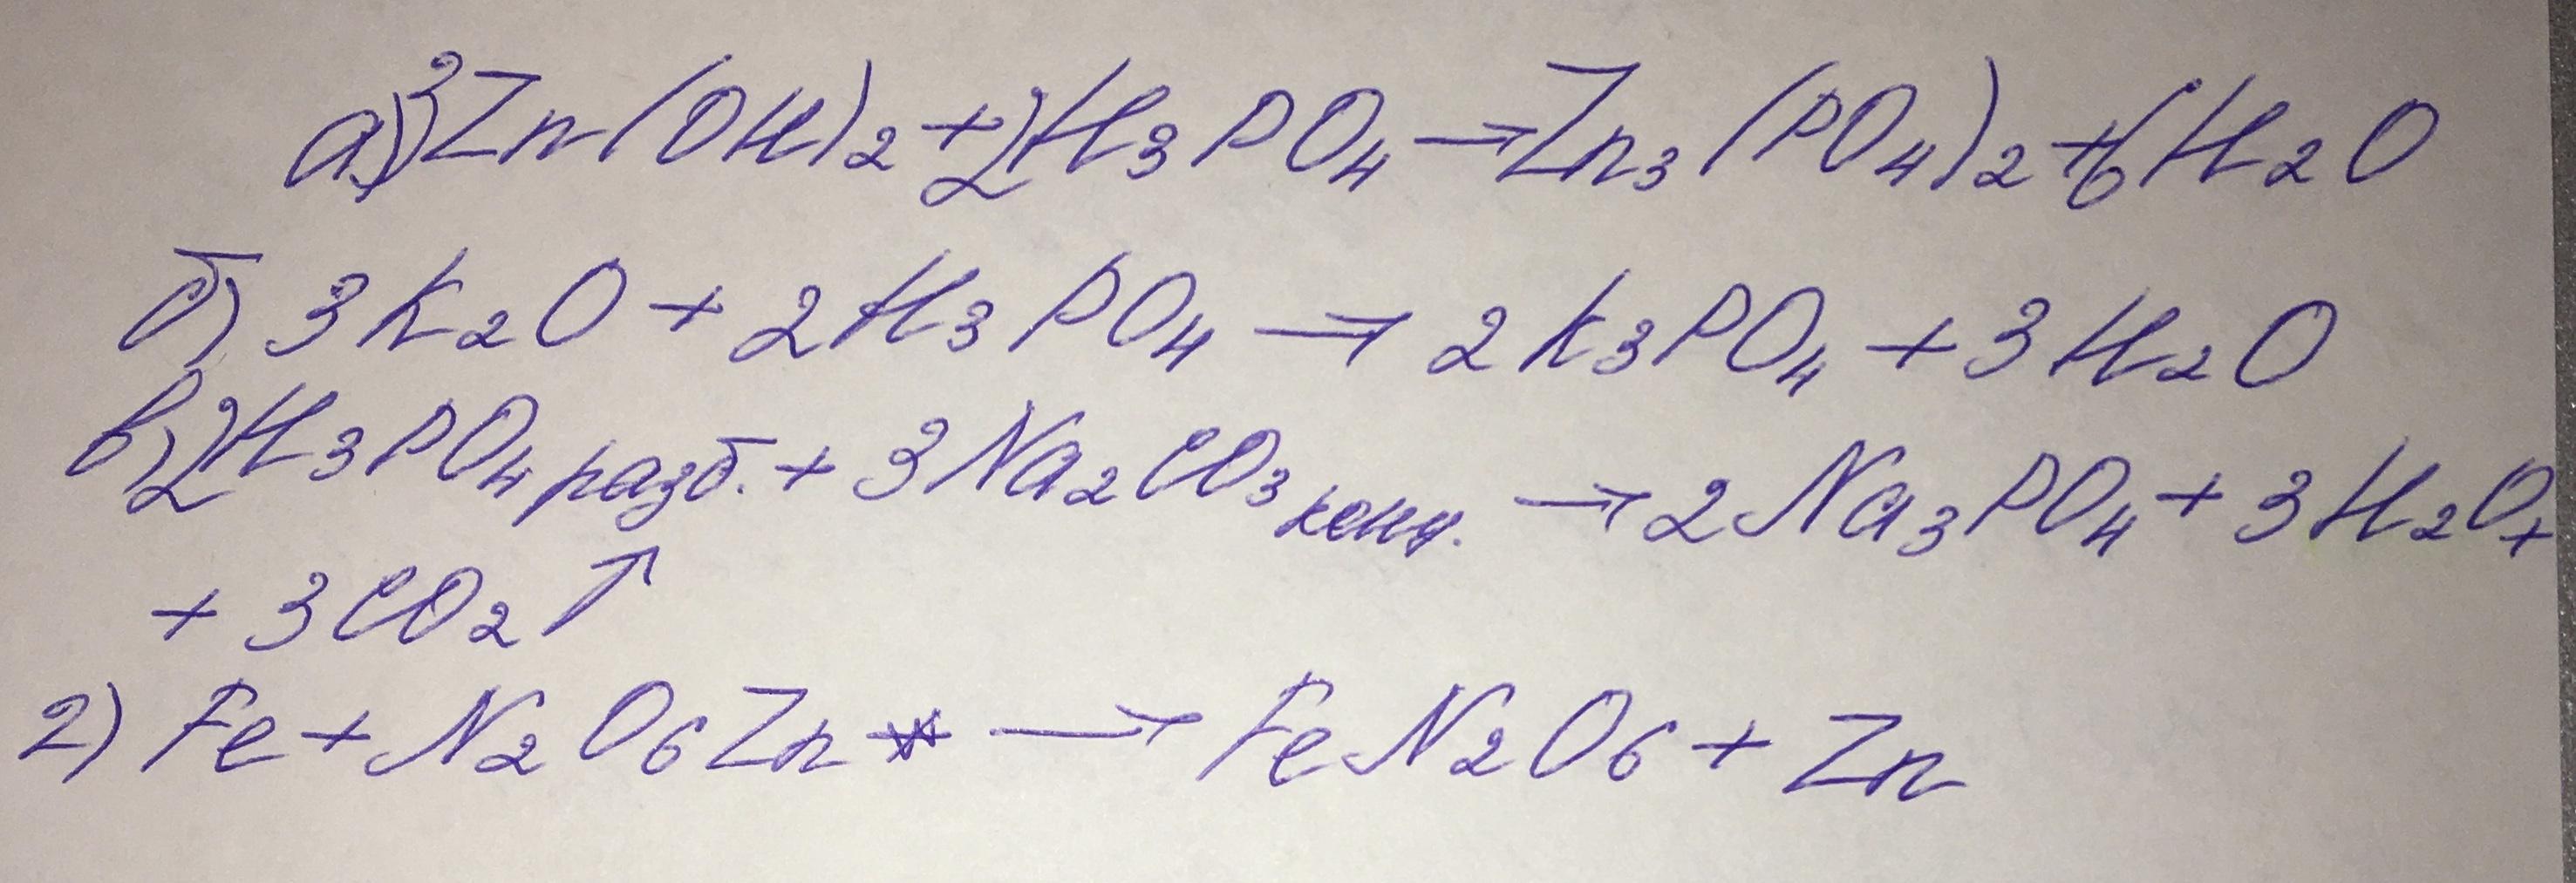 а) 3Zn(OH)₂ + 2H₃PO₄ → Zn₃(PO₄)₂ + 6H₂O
б) 3K₂O + 2H₃PO₄ → 2K₃PO₄ + 3H₂O
в) 2H₃PO₄ разб. + 3Na₂CO₃ конц. → 2Na₃PO₄ + 3H₂O +
+ 3CO₂↑
2) Fe + N₂O₆Zn → FeN₂O₆ + Zn